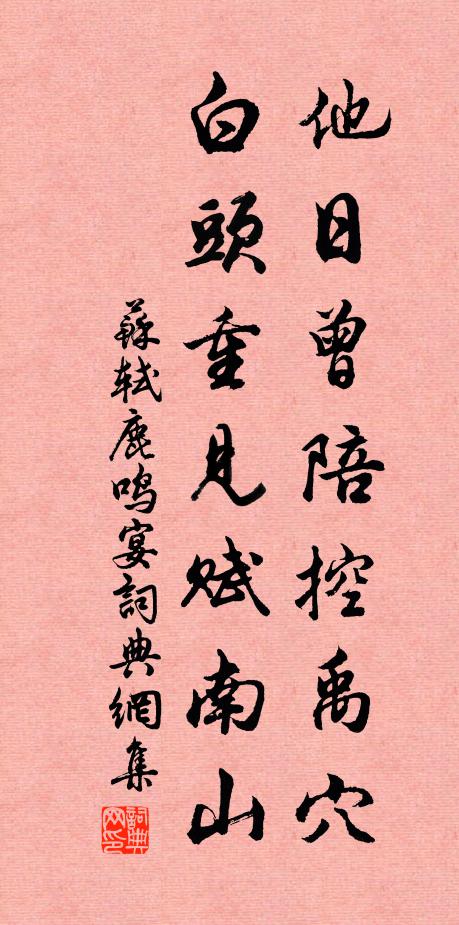 他日曾陪控禹穴
白頭重見賦南山
蘇軾鹿鳴宴詞典網集
詞典网印